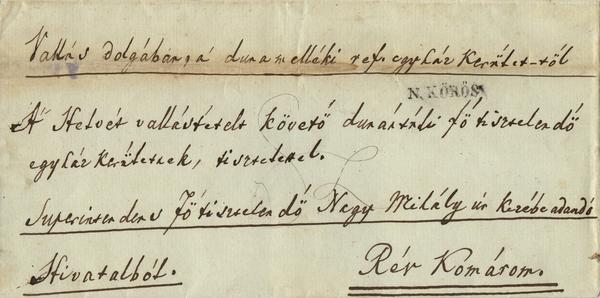 Vallás dolgában, a' dunamelléki ref. egyház Kerűlet-től
N. KŐRÖS
A' Helvét vallástételt követő dunántúli főtisztelendő
egyház kerűletnek, tisztelettel.
Superintendens Főtisztelendő Nagy Mihály úr kezébe adandó
Hivatalból.
Rév Komárom.